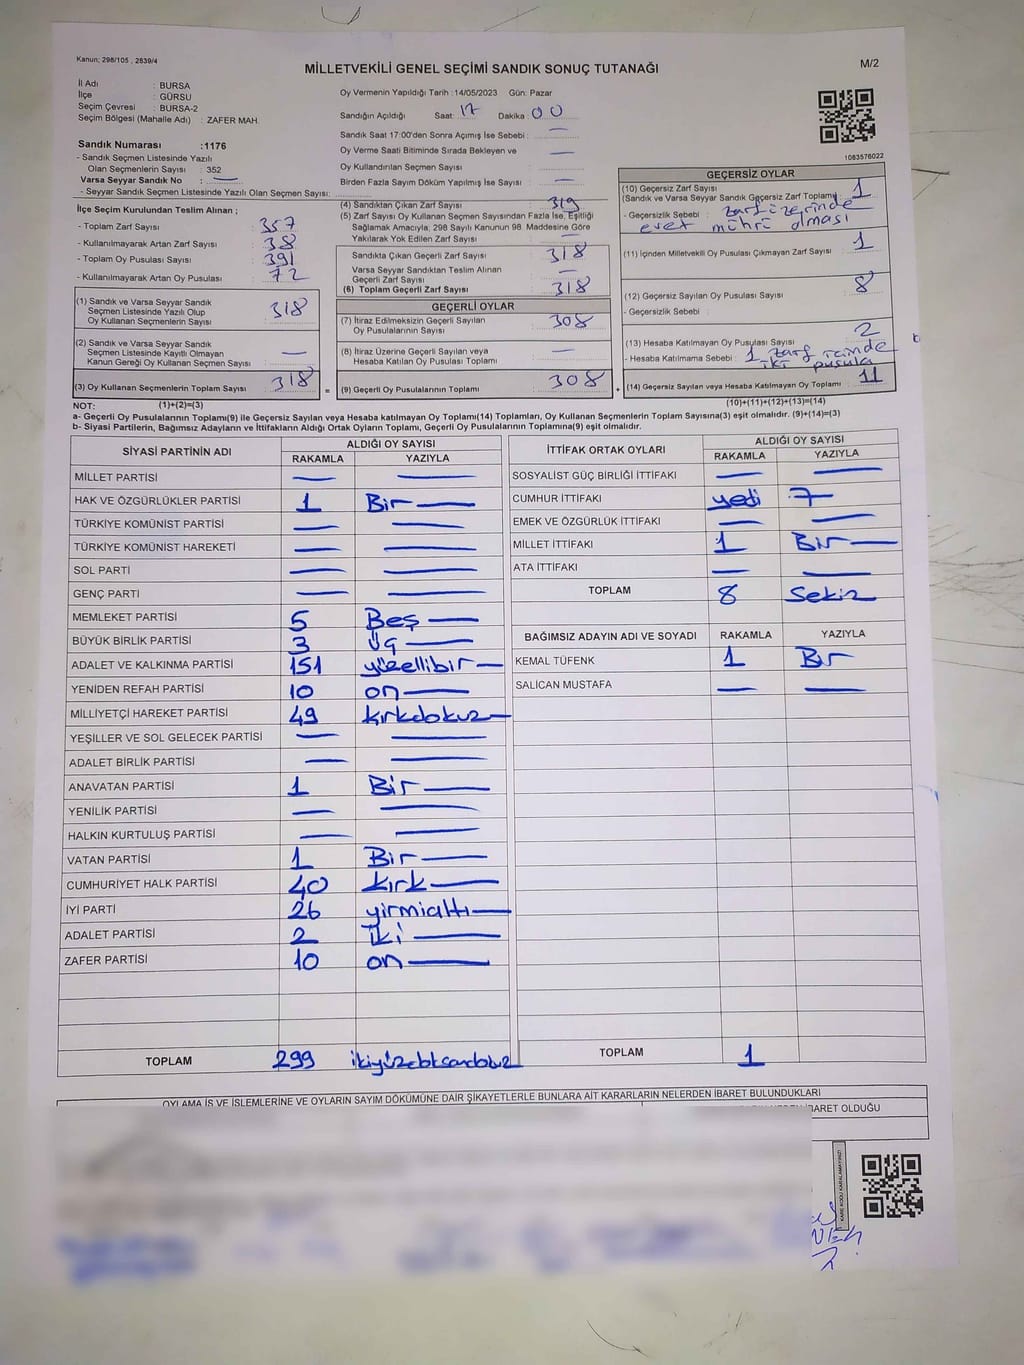 Kanun; 298/105 , 2839/4
MİLLETVEKİLİ GENEL SEÇİMİ SANDIK SONUÇ TUTANAĞI
M/2
İl Adı : BURSA
İlçe : GÜRSU
Seçim Çevresi : BURSA-2
Seçim Bölgesi (Mahalle Adı) : ZAFER MAH.
Sandık Numarası :1176
- Sandık Seçmen Listesinde Yazılı
Olan Seçmenlerin Sayısı : 352
Varsa Seyyar Sandık No : —
- Seyyar Sandık Seçmen Listesinde Yazılı Olan Seçmen Sayısı:
Oy Vermenin Yapıldığı Tarih :14/05/2023 Gün: Pazar
Sandığın Açıldığı Saat: 17 Dakika : 00
Sandık Saat 17:00'den Sonra Açımış İse Sebebi : —
Oy Verme Saati Bitiminde Sırada Bekleyen ve —
Oy Kullandırılan Seçmen Sayısı
Birden Fazla Sayım Döküm Yapılmış İse Sayısı —
1083576022
İlçe Seçim Kurulundan Teslim Alınan ;
- Toplam Zarf Sayısı : 357
- Kullanılmayarak Artan Zarf Sayısı : 38
- Toplam Oy Pusulası Sayısı : 391
- Kullanılmayarak Artan Oy Pusulası : 72
(1) Sandık ve Varsa Seyyar Sandık
Seçmen Listesinde Yazılı Olup : 318
Oy Kullanan Seçmenlerin Sayısı
(2) Sandık ve Varsa Seyyar Sandık
Seçmen Listesinde Kayıtlı Olmayan —
Kanun Gereği Oy Kullanan Seçmen Sayısı :
(3) Oy Kullanan Seçmenlerin Toplam Sayısı : 318
(4) Sandıktan Çıkan Zarf Sayısı : 319
(5) Zarf Sayısı Oy Kullanan Seçmen Sayısından Fazla İse, Eşitliği
Sağlamak Amacıyla, 298 Sayılı Kanunun 98. Maddesine Göre
Yakılarak Yok Edilen Zarf Sayısı —
Sandıkta Çıkan Geçerli Zarf Sayısı : 318
Varsa Seyyar Sandıktan Teslim Alınan
Geçerli Zarf Sayısı —
(6) Toplam Geçerli Zarf Sayısı : 318
GEÇERLİ OYLAR
(7) İtiraz Edilmeksizin Geçerli Sayılan
Oy Pusulalarının Sayısı : 308
(8) İtiraz Üzerine Geçerli Sayılan veya
Hesaba Katılan Oy Pusulası Toplamı : —
= (9) Geçerli Oy Pusulalarının Toplamı : 308
GEÇERSİZ OYLAR
(10) Geçersiz Zarf Sayısı
(Sandık ve Varsa Seyyar Sandık Geçersiz Zarf Toplamı) 1
- Geçersizlik Sebebi : zarf üzerinde
evet mührü olması
(11) İçinden Milletvekili Oy Pusulası Çıkmayan Zarf Sayısı : 1
(12) Geçersiz Sayılan Oy Pusulası Sayısı : 8
- Geçersizlik Sebebi :
(13) Hesaba Katılmayan Oy Pusulası Sayısı : 2
- Hesaba Katılmama Sebebi : 1 zarf içinde
iki pusula
+ (14) Geçersiz Sayılan veya Hesaba Katılmayan Oy Toplamı : 11
NOT: (1)+(2)=(3)
(10)+(11)+(12)+(13)=(14)
a- Geçerli Oy Pusulalarının Toplamı(9) ile Geçersiz Sayılan veya Hesaba katılmayan Oy Toplamı(14) Toplamları, Oy Kullanan Seçmenlerin Toplam Sayısına(3) eşit olmalıdır. (9)+(14)=(3)
b- Siyasi Partilerin, Bağımsız Adayların ve İttifakların Aldığı Ortak Oyların Toplamı, Geçerli Oy Pusulalarının Toplamına(9) eşit olmalıdır.
SİYASİ PARTİNİN ADI ALDIĞI OY SAYISI
RAKAMLA YAZIYLA
MİLLET PARTİSİ — —
HAK VE ÖZGÜRLÜKLER PARTİSİ 1 Bir —
TÜRKİYE KOMÜNİST PARTİSİ — —
TÜRKİYE KOMÜNİST HAREKETİ — —
SOL PARTİ — —
GENÇ PARTİ — —
MEMLEKET PARTİSİ 5 Beş —
BÜYÜK BİRLİK PARTİSİ 3 Üç —
ADALET VE KALKINMA PARTİSİ 151 yüzellibir —
YENİDEN REFAH PARTİSİ 10 on —
MİLLİYETÇİ HAREKET PARTİSİ 49 kırkdokuz —
YEŞİLLER VE SOL GELECEK PARTİSİ — —
ADALET BİRLİK PARTİSİ — —
ANAVATAN PARTİSİ 1 Bir —
YENİLİK PARTİSİ — —
HALKIN KURTULUŞ PARTİSİ — —
VATAN PARTİSİ 1 Bir —
CUMHURİYET HALK PARTİSİ 40 kırk —
İYİ PARTİ 26 yirmialtı —
ADALET PARTİSİ 2 İki —
ZAFER PARTİSİ 10 on —
TOPLAM 299 ikiyüzdoksandokuz
İTTİFAK ORTAK OYLARI ALDIĞI OY SAYISI
RAKAMLA YAZIYLA
SOSYALİST GÜÇ BİRLİĞİ İTTİFAKI — —
CUMHUR İTTİFAKI yedi 7 —
EMEK VE ÖZGÜRLÜK İTTİFAKI — —
MİLLET İTTİFAKI 1 Bir —
ATA İTTİFAKI — —
TOPLAM 8 Sekiz
BAĞIMSIZ ADAYIN ADI VE SOYADI RAKAMLA YAZIYLA
KEMAL TÜFENK 1 Bir
SALİCAN MUSTAFA — —
TOPLAM 1
OYLAMA İŞ VE İŞLEMLERİNE VE OYLARIN SAYIM DÖKÜMÜNE DAİR ŞİKAYETLERLE BUNLARA AİT KARARLARIN NELERDEN İBARET BULUNDUKLARI
İBARET OLDUĞU
KARE KODU KARALAMAYINIZ!